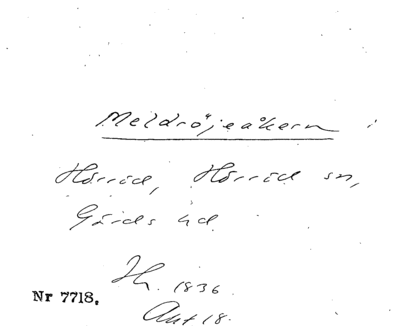 Meldröjeåkern i
Hörröd, Hörröd sn,
Gärds hd
Jh. 1836.
Akt 18.
Nr 7718.